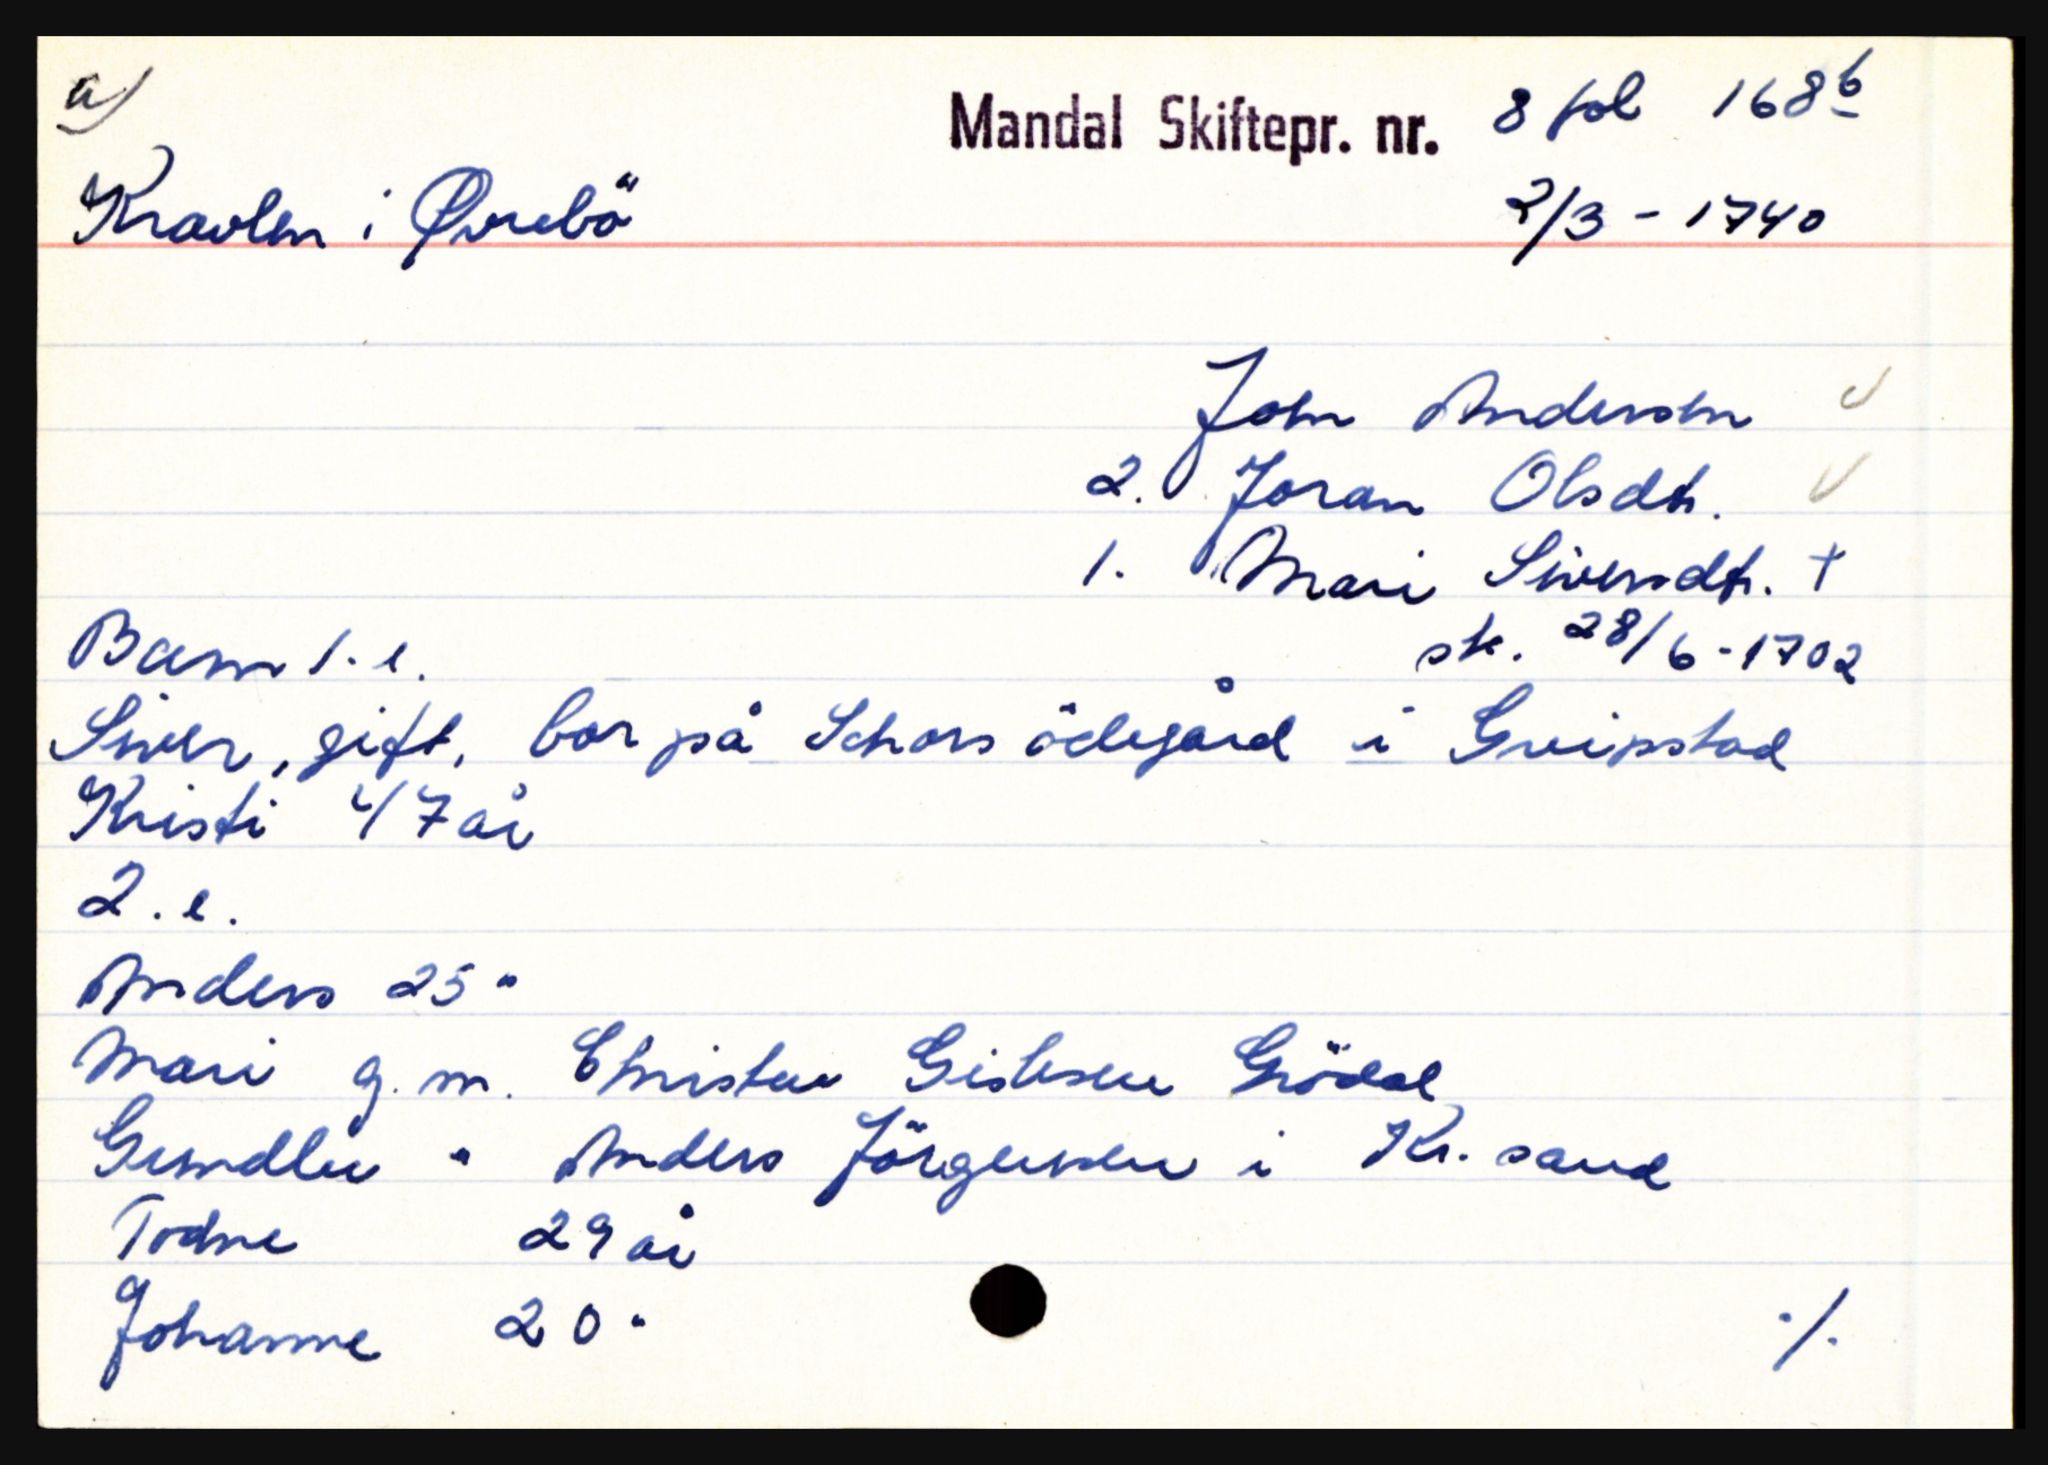 a)
Mandal Skiftepr. nr. 8 fol 168b
Kravlen i Øvrebö 2/3 - 1740
John Andersen
2. Joran Olsdtr.
1. Mari Siversdtr. +
sk. 28/6-1702
Barn 1. e.
Siver, gift, bor på Schors ödegård i Greipstad
Kristi 47 år
2. e.
Anders 25 "
Mari g. m. Christen Gislesen Grödal
Gundle " Anders Jörgensen i Kr. sand
Todne 29 år
Johanne 20 "
./.